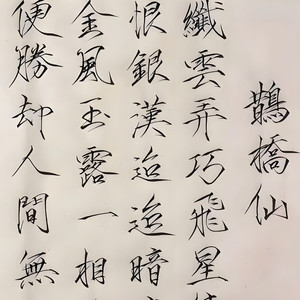 鵲橋仙
纖雲弄巧飛星
恨銀漢迢迢暗
金風玉露一相
便勝却人間無